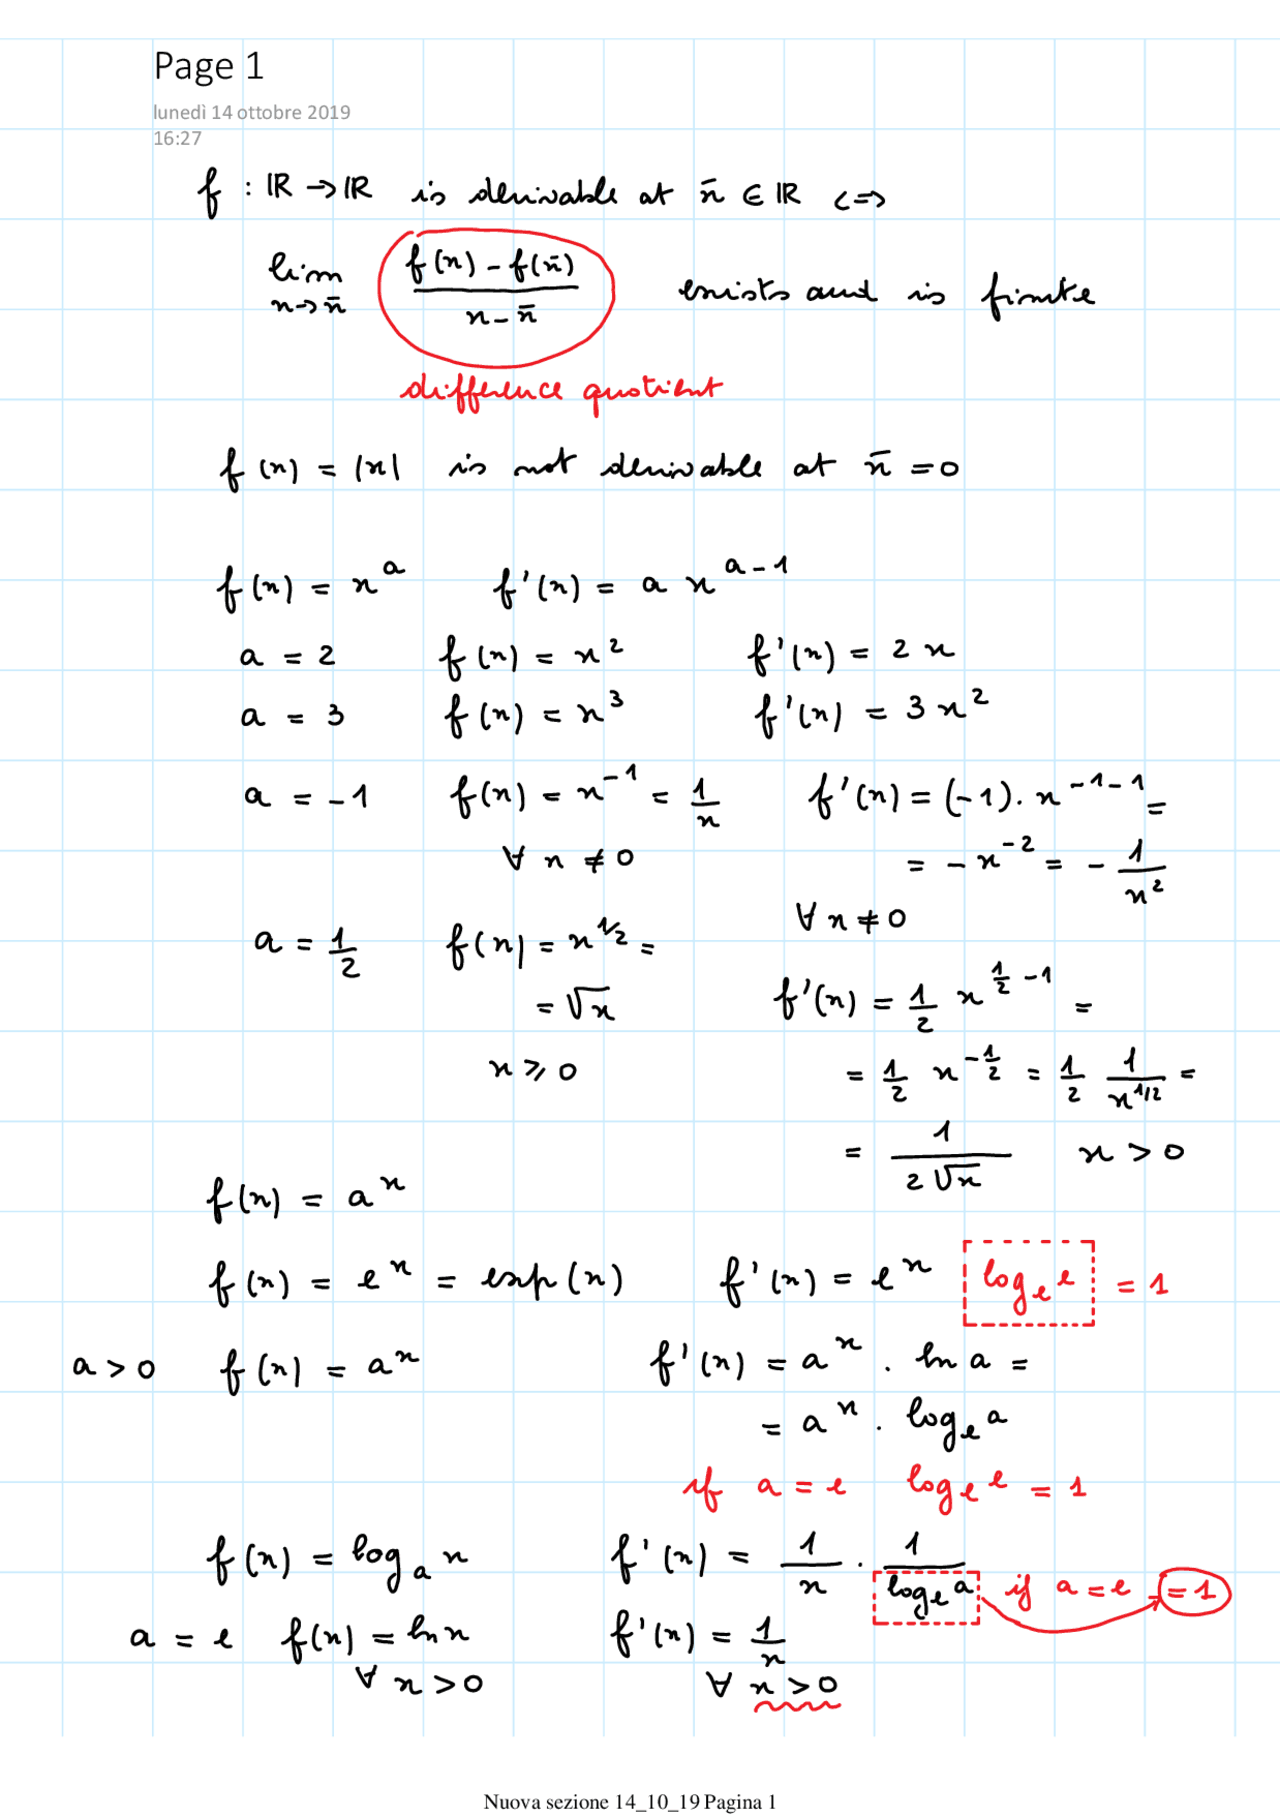 Page 1
lunedì 14 ottobre 2019
16:27
f : ℝ → ℝ is derivable at x̄ ∈ ℝ <=>
lim x→x̄ (f(x) - f(x̄))/(x - x̄) exists and is finite
difference quotient
f(x) = |x| is not derivable at x̄ = 0
f(x) = x^a f'(x) = a x^(a-1)
a = 2 f(x) = x^2 f'(x) = 2x
a = 3 f(x) = x^3 f'(x) = 3x^2
a = -1 f(x) = x^(-1) = 1/x f'(x) = (-1) · x^(-1-1) =
∀ x ≠ 0 = -x^(-2) = - 1/x^2
∀ x ≠ 0
a = 1/2 f(x) = x^(1/2) =
= √x f'(x) = 1/2 x^(1/2 - 1) =
x ⩾ 0 = 1/2 x^(-1/2) = 1/2 1/x^(1/2) =
= 1/(2√x) x > 0
f(x) = a^x
f(x) = e^x = exp(x) f'(x) = e^x log_e e = 1
a > 0 f(x) = a^x f'(x) = a^x · ln a =
= a^x · log_e a
if a = e log_e e = 1
f(x) = log_a x f'(x) = 1/x · 1/log_e a if a = e = 1
a = e f(x) = ln x f'(x) = 1/x
∀ x > 0 ∀ x > 0
Nuova sezione 14_10_19 Pagina 1